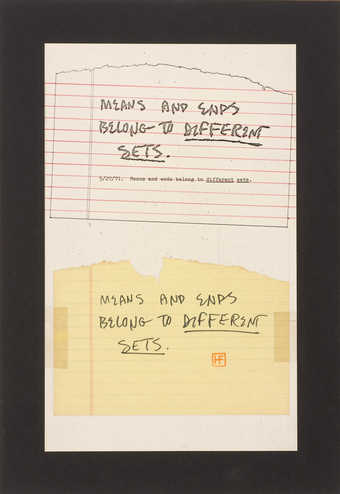 MEANS AND ENDS
BELONG TO DIFFERENT
SETS.
5/20/71. Means and ends belong to different sets.
MEANS AND ENDS
BELONG TO DIFFERENT
SETS.
HF